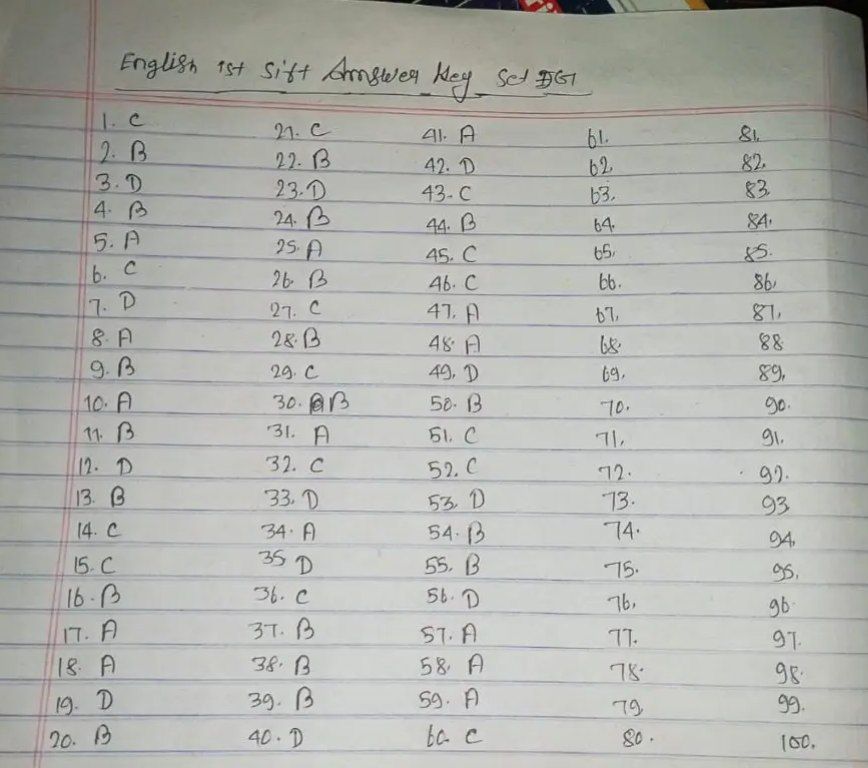 English 1st Sift Answer Key Set
1. C 21. C 41. A 61. 81.
2. B 22. B 42. D 62. 82.
3. D 23. D 43. C 63. 83.
4. B 24. B 44. B 64. 84.
5. A 25. A 45. C 65. 85.
6. C 26. B 46. C 66. 86.
7. D 27. C 47. A 67. 87.
8. A 28. B 48. A 68. 88
9. B 29. C 49. D 69. 89.
10. A 30. B 50. B 70. 90.
11. B 31. A 51. C 71. 91.
12. D 32. C 52. C 72. 92.
13. B 33. D 53. D 73. 93
14. C 34. A 54. B 74. 94.
15. C 35 D 55. B 75. 95.
16. B 36. C 56. D 76. 96.
17. A 37. B 57. A 77. 97.
18. A 38. B 58. A 78. 98.
19. D 39. B 59. A 79. 99.
20. B 40. D 60. C 80. 100.